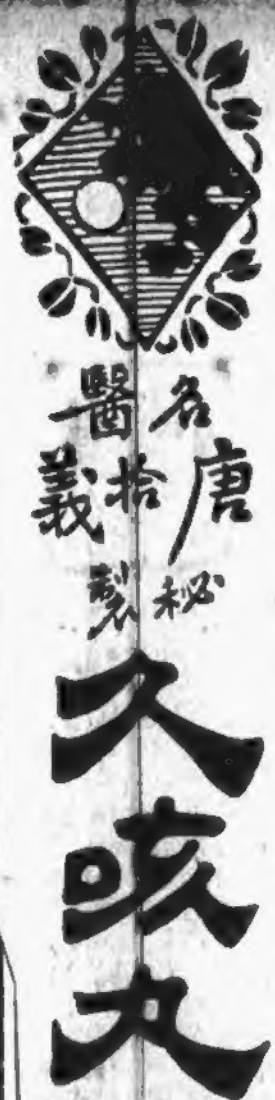 名醫
唐拾義
秘製
久咳丸